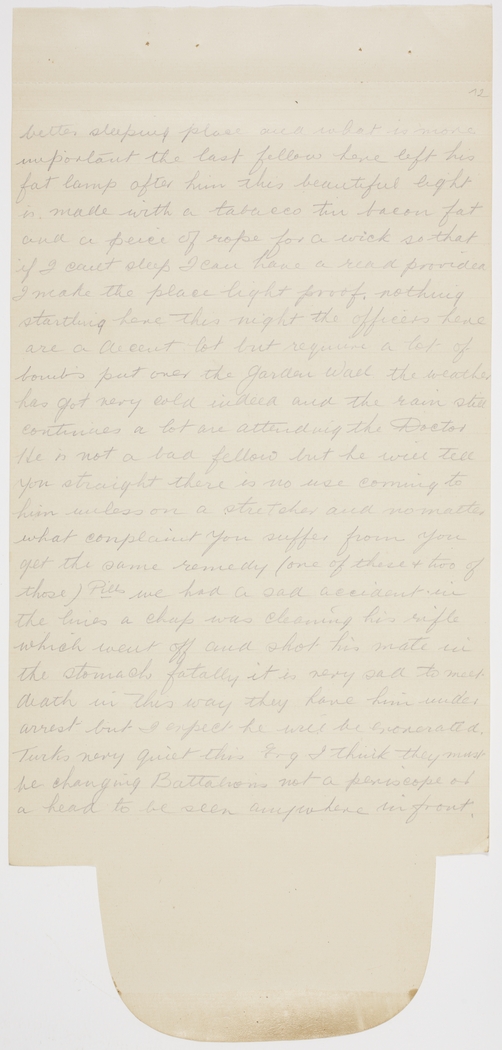 12
better sleeping place and what is more
important the last fellow here left his
fat lamp after him this beautiful light
is made with a tabacco tin bacon fat
and a peice of rope for a wick so that
if I cant sleep I can have a read provided
I make the place light proof. nothing
startling here this night the officers here
are a decent lot but require a lot of
bombs put over the Garden Wall the weather
has got very cold indeed and the rain still
continues a lot are attending the Doctor
He is not a bad fellow but he will tell
you straight there is no use coming to
him unless on a stretcher and no matter
what complaint you suffer from you
get the same remedy (one of these & two of
those) Pills we had a sad accident in
the lines a chap was cleaning his rifle
which went off and shot his mate in
the stomach fatally it is very sad to meet
death in this way they have him under
arrest but I expect he will be exonerated.
Turks very quiet this Evg I think they must
be changing Battalions not a periscope or
a head to be seen anywhere in front.